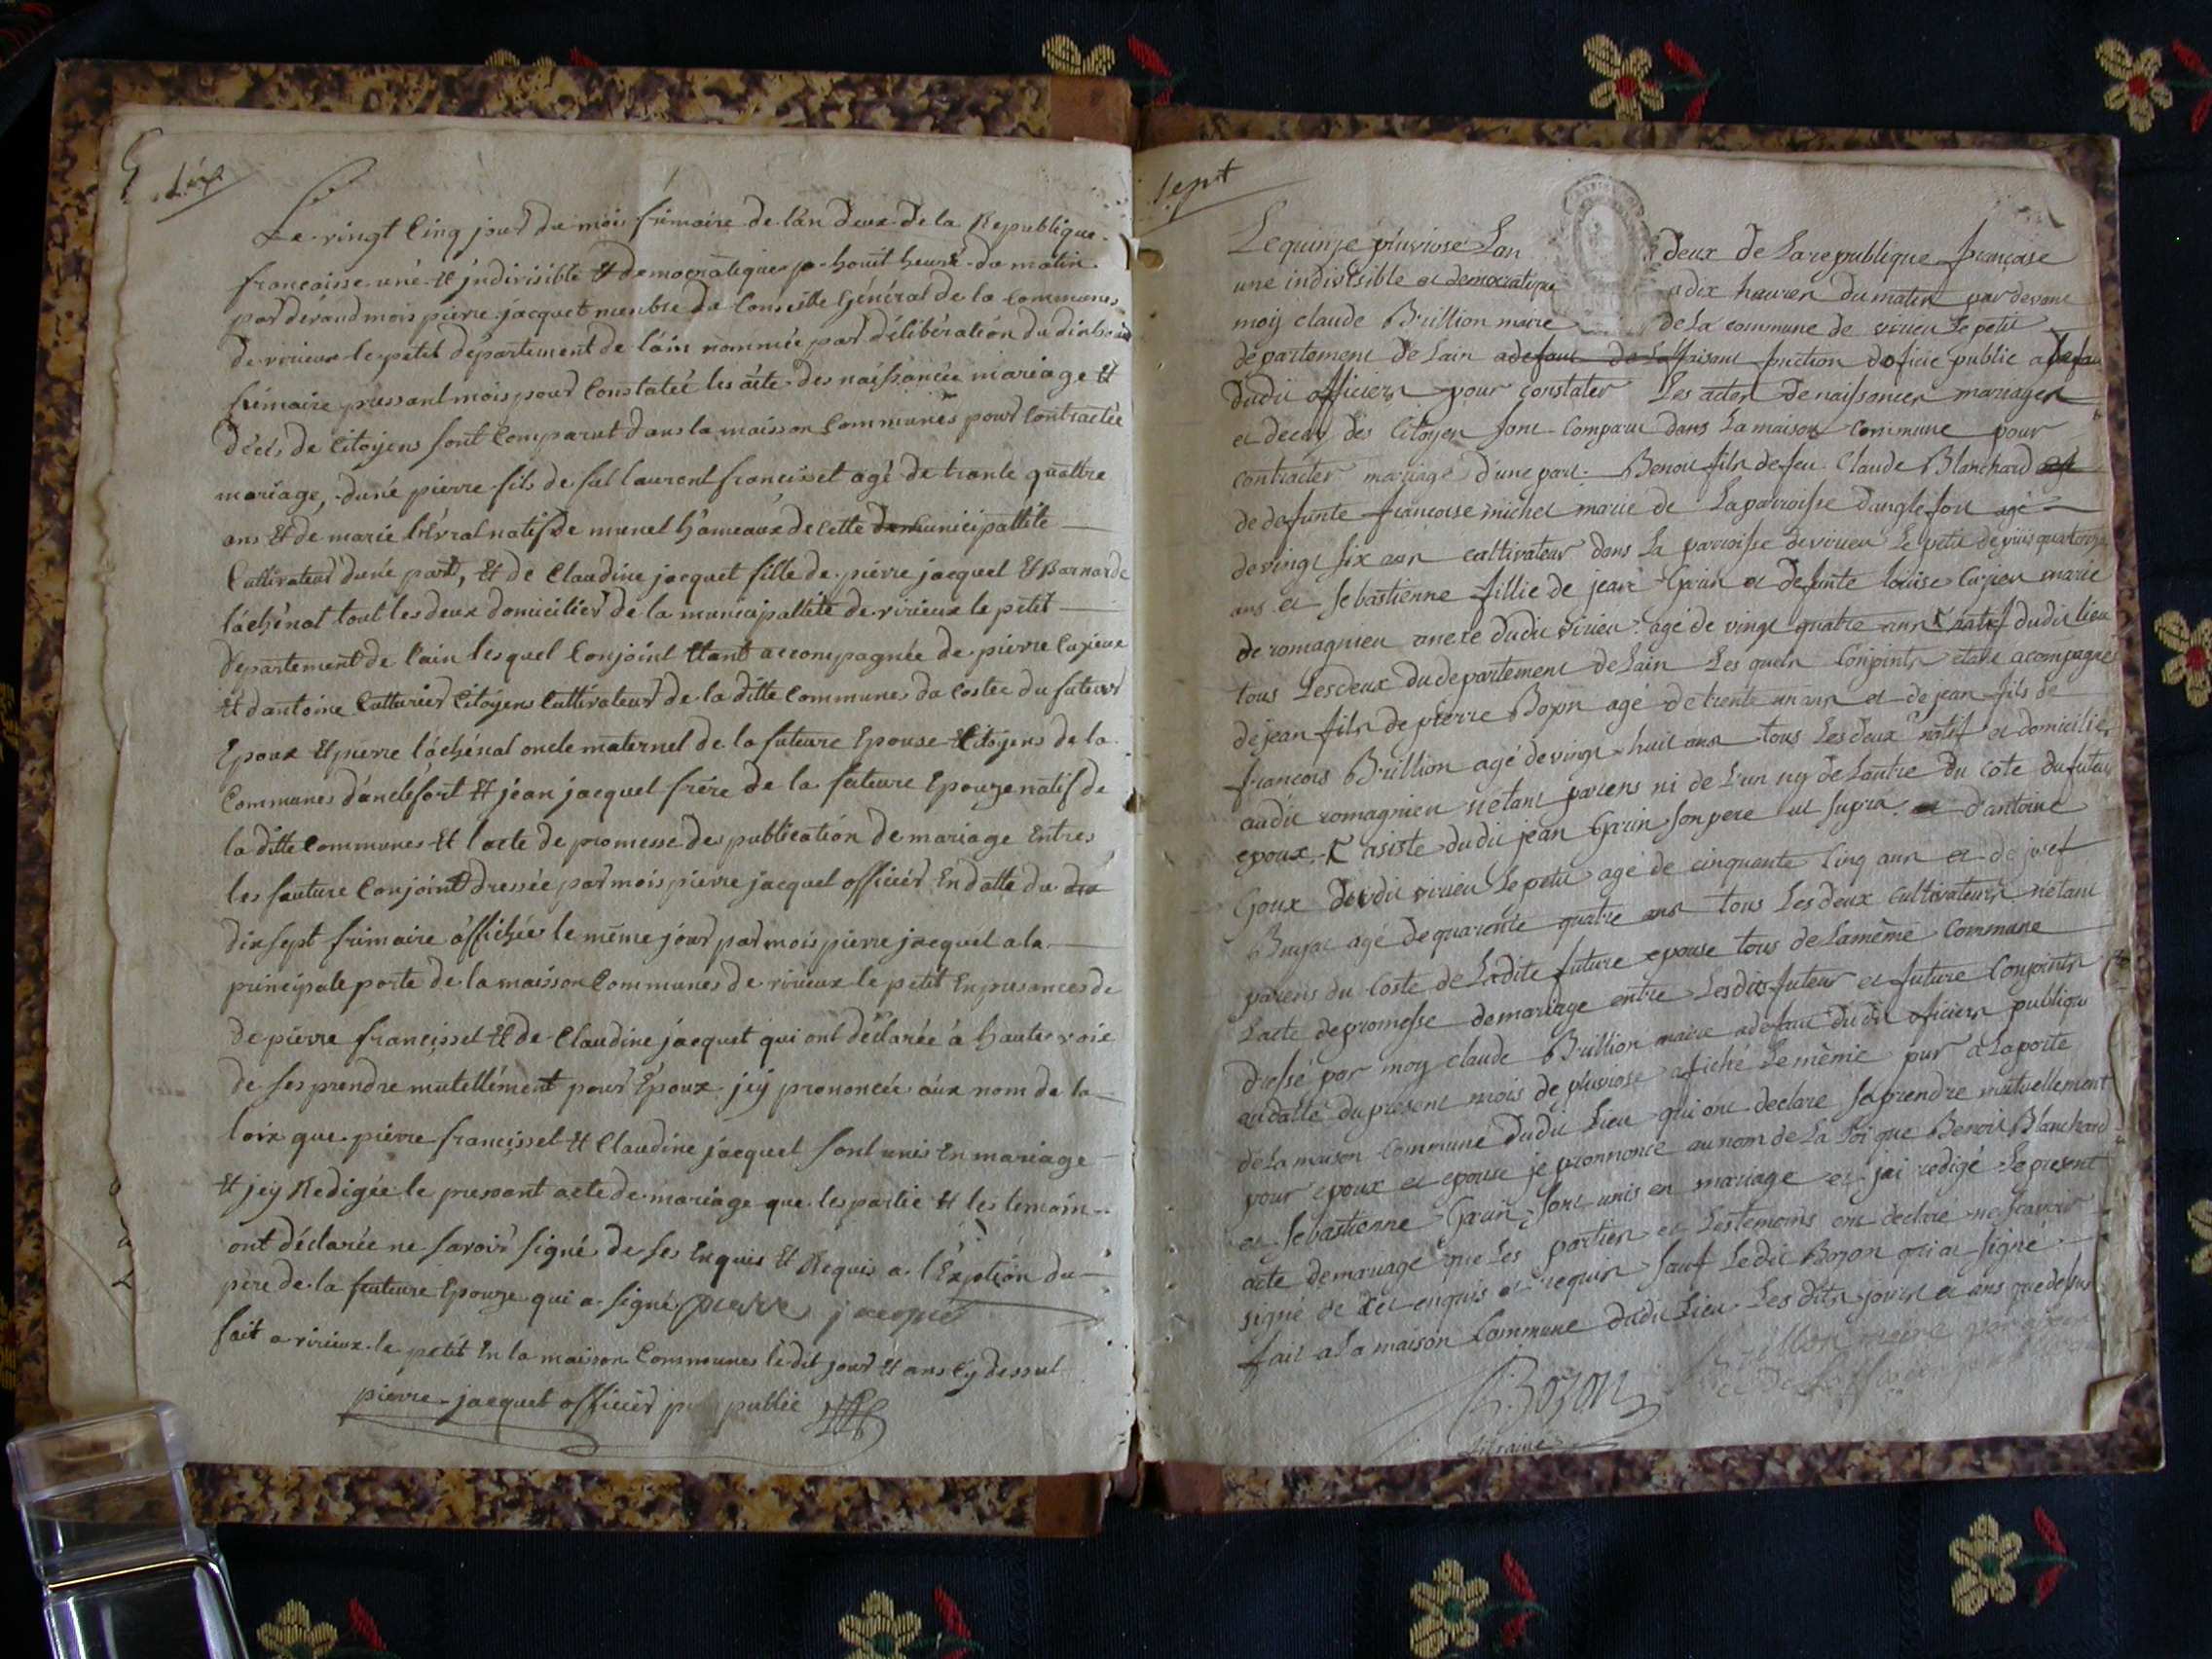 six
Le vingt Cinq jour du mois frimaire de l'an deux de la Republique
francaisse une et jndivisible et democratique a houit heure du matin
par devand mois pierre jacquet menbre du Conseille Général de la Communes
de virieux le petit département de l'ain nommée par délibération du
frimaire pressant mois pour Constatée les acte des naissancée mariage et
décès de Citoyens sont Comparut dans la maisson Communes pour Contractée
mariage, dune pierre fils de fut laurent francisset agé de trante quattre
ans et de marie natif de munet hameaux de cette municipallité
Cultivateur dune part, et de Claudine jacquet fille de pierre jacquet et Barnarde
láchénal tout les deux domicilier de la municipallité de virieux le petit
département de l'ain lesquel Conjoint etant accompagnée de pierre Cuzieux
et dantoine Citoyens Cultivateur de la ditte Communes da Costée du futeur
Epoux et pierre láchénal oncle maternel de la future Epouse et Citoyens de la
Communes d'anclefort et jean jacquet frére de la futeure Epouze natif de
la ditte Communes et l'acte de promesse des publicatión de mariage Entres
les fauture Conjoint dressée par mois pierre jacquet officier En datte du
dix sept frimaire affichée le même jour par mois pierre jacquet a la
principale porte de la maisson Communes de virieux le petit En presances de
de pierre francisset et de Claudine jacquet qui ont déclarée à hautes voie
de ses prendre mutellément pour Époux jéy prononcée aux nom de la
loix que pierre francisset et Claudine jacquet sont unis En mariage
et jéy Redigée le pressant acte de mariage que les partie et les temoin
ont déclarée ne savoir signé de ses Enquis et Requis a l'Exption du
pere de la feuteure Epouze qui a signé pierre jacque
fait a virieux le petit En la maison Communes le dit jour et ans Cy dessut
pierre jacquet officier public
sept
Le quinze pluviose Lan deux de La republique francaise
une indivisible et democratique a dix heures du matin par devant
moy claude Brillion maire de La commune de virieu Le petit
département de Lain a defaut de La faisant fonction doficie public a defau
dudit officiers pour constater Les actes de naissances mariages
et deces des Citoyen sont Comparu dans La maison Commune pour
contracter mariage d'une part Benoit fils de feu Claude Blanchard
de defunte francoise michet marié de La parroisse d'anglefort agé
de vingt six ans cultivateur dans La parroisse de virieu Le petit depuis quatorze
ans et sebastienne fillie de jean Garin et defunte louise Cuzieu marié
de romagnieu anexe dudit virieu agé de vingt quatre ans natif dudit lieu
tous Les deux du departement de Lain Les quels Conjoints etant acompagné
de jean fils de pierre Bozon agé de trente un ans et de jean fils de
francois Brillion agé de vingt huit ans tous Les deux natif et domicilié
audit romagnieu n'etant pariens ni de L'un ny de Lautre du cote du futeur
epoux asiste dudit jean Garin son pere ut supra et d'antoine
Goux dudit virieu Le petit agé de cinquante cinq ans et de josef
agé de quarente quatre ans tous Les deux cultivateurs n'etant
pariens du Costé de La dite future epouse tous de La même Commune
Lacte de promesse de mariage entre Les dits futeur et future Conjoints
dressé par moy claude Brillion maire a defaut du dit oficiers publique
au datte du present mois de pluviose afiché Le même jour a La porte
de La maison Commune dudit Lieu qui ont declare se prendre mutuellement
pour epoux et epouse je prononce au nom de La Loi que Benoit Blanchard
et sebastienne Garin sont unis en mariage et jai redigé Le present
acte de mariage que Les parties et Les temoins ont declaré ne scavoir
signé de ce enquis et requis sauf Le dit Bozon qui a signé
fait a La maison Commune dudit Lieu Les dits jours et ans que dessus
Bozon Brillion maire